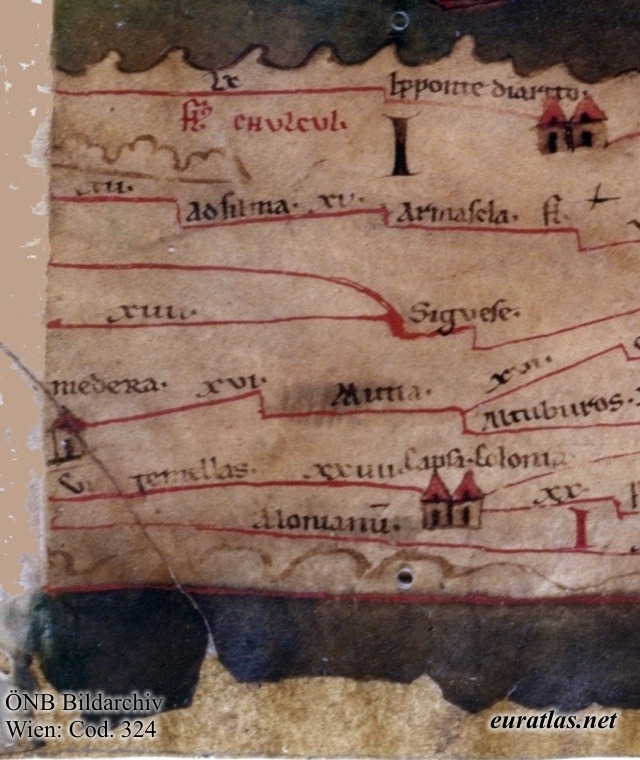 lx Ipponte diarito.
fl. CHVLCVL.
I
Adsilma. xv. Armascla. fl.
xiiii. Siguese.
medera. xvi. Mutia. xvi.
Altuburos.
Gemellas. xxiiii. Capsa. Colonia
xx.
Alonianū. I
ÖNB Bildarchiv
Wien: Cod. 324
euratlas.net